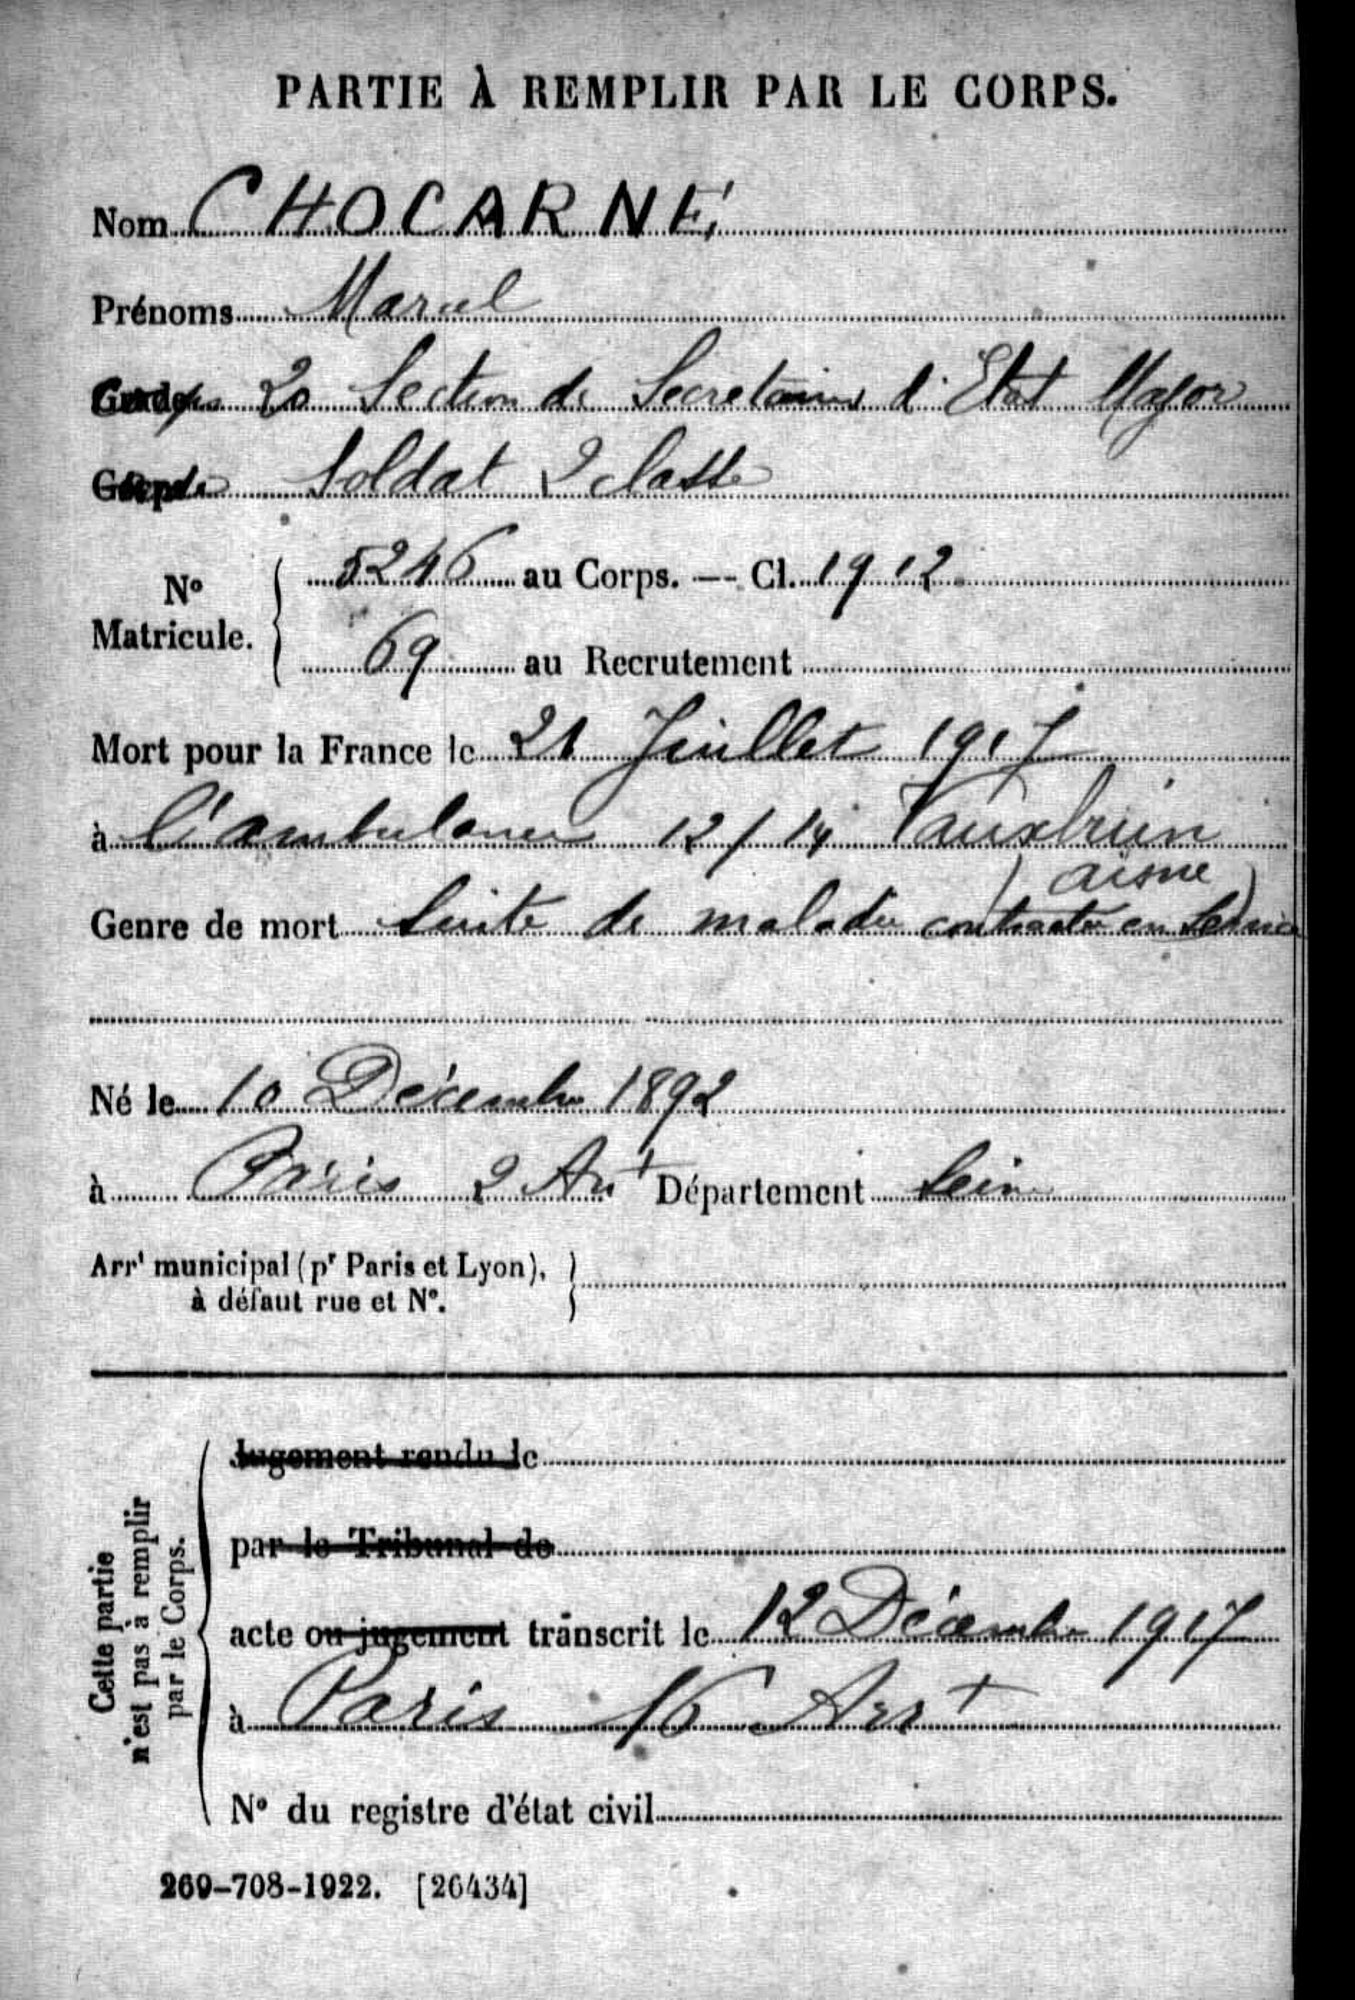 PARTIE À REMPLIR PAR LE CORPS.
Nom CHOCARNÉ
Prénoms Marcel
Corps 20 Section de Secretaires d'Etat Major
Grade Soldat 2 classe
N° Matricule. 5246 au Corps. — Cl. 1912
69 au Recrutement
Mort pour la France le 21 Juillet 1917
à l'ambulance 12/14 Vauxbuin
(aisne)
Genre de mort Suite de maladie contractée en Service
Né le 10 Décembre 1892
à Paris 2 Arrt Département Seine
Arrt municipal (pr Paris et Lyon),
à défaut rue et N°.
Cette partie
n'est pas à remplir
par le Corps.
Jugement rendu le
par le Tribunal de
acte ou jugement transcrit le 12 Décembre 1917
à Paris 16 Arrt
N° du registre d'état civil
269-708-1922. [26434]